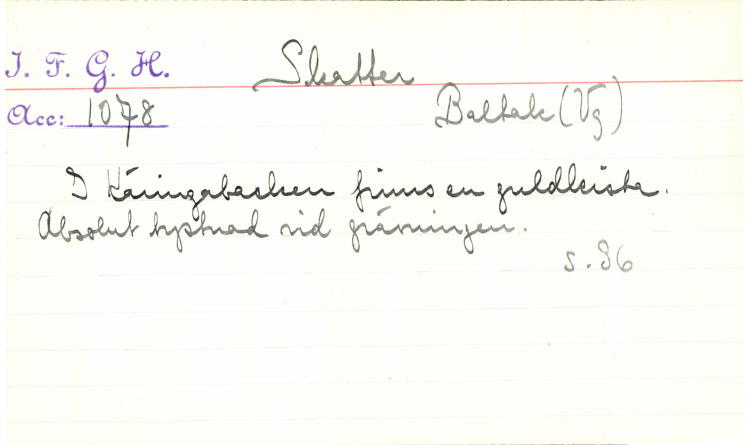 I. F. G. H.
Skatter
Acc: 1078
Baltak (Vg)
I Käringabacken finns en guldkista.
Absolut tystnad vid grävningen.
s. 86